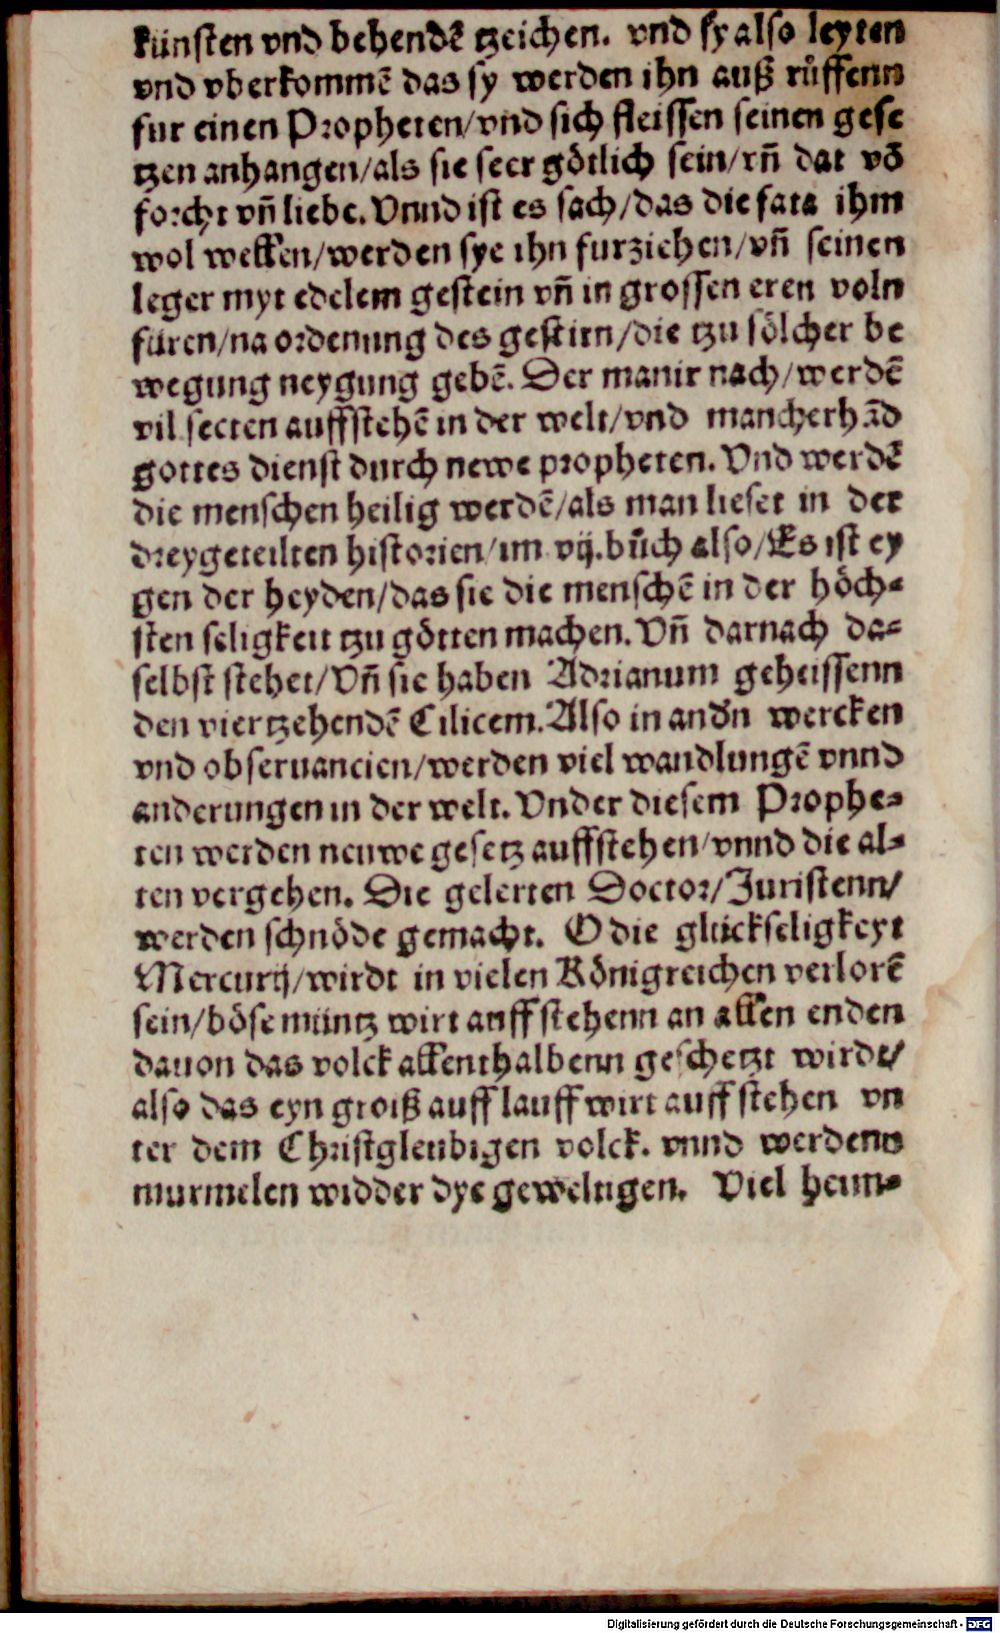 künsten vnd behendē tzeichen. vnd sy also leyten
vnd vberkommē das sy werden ihn auß růffenn
fur einen Propheten/vnd sich fleissen seinen gese
tzen anhangen/als sie seer götlich sein/vñ dat vō
forcht vñ liebe. Vnnd ist es sach/das die fata ihm
wol wellen/werden sye ihn furziehen/vñ seinen
leger myt edelem gestein vñ in grossen eren voln
füren/na ordenung des gestirn/die tzu sölcher be
wegung neygung gebē. Der manir nach/werdē
vil secten auffstehē in der welt/vnd mancherhād
gottes dienst durch newe propheten. Vnd werdē
die menschen heilig werdē/als man lieset in der
dreygeteilten historien/im vij.bůch also/Es ist ey
gen der heyden/das sie die menschē in der höch-
sten seligkeit tzu götten machen. Vñ darnach da-
selbst stehet/Vñ sie haben Adrianum geheissenn
den viertzehendē Cilicem. Also in andn̄ wercken
vnd obseruancien/werden viel wandlungē vnnd
anderungen in der welt. Vnder diesem Prophe-
ten werden neuwe gesetz auffstehen/vnnd die al-
ten vergehen. Die gelerten Doctor/Juristenn/
werden schnöde gemacht. O die glückseligkeyt
Mercurij/wirdt in vielen Königreichen verlorē
sein/böse müntz wirt auffstehenn an allen enden
dauon das volck allenthalbenn geschetzt wirdt/
also das eyn groiß auff lauff wirt auff stehen vn
ter dem Christgleubigen volck. vnnd werdenn
murmelen widder dye geweltigen. Viel heim-
Digitalisierung gefördert durch die Deutsche Forschungsgemeinschaft - DFG